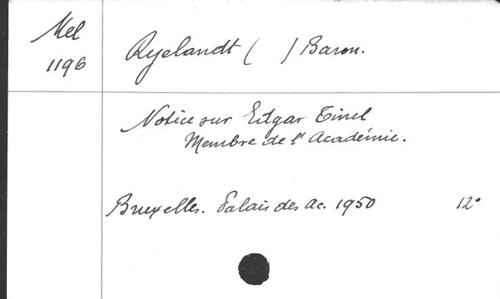 Mel
1196
Ryelandt (      ) Baron.
Notice sur Edgar Tinel
Membre de l'Académie.
Bruxelles. Palais des Ac. 1950 12°